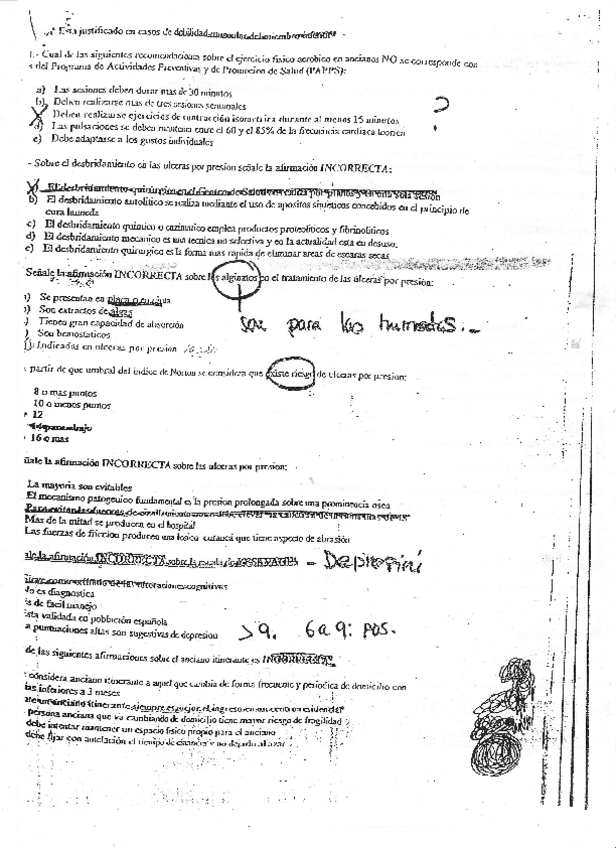 Esta justificado en casos de debilidad muscular del miembro inferior
- Cual de las siguientes recomendaciones sobre el ejercicio fisico aerobico en ancianos NO se corresponde con
del Programa de Actividades Preventivas y de Promocion de Salud (PAPPS):
a) Las sesiones deben durar mas de 30 minutos
b) Deben realizarse mas de tres sesiones semanales
Deben realizarse ejercicios de contracción isometrica durante al menos 15 minutos
d) Las pulsaciones se deben mantener entre el 60 y el 85% de la frecuencia cardiaca teorica
e) Debe adaptarse a los gustos individuales
- Sobre el desbridamiento en las ulceras por presion señale la afirmación INCORRECTA:
El desbridamiento quirurgico en el Centro de Salud se realiza por planos y en una sola sesión
b) El desbridamiento autolitico se realiza mediante el uso de apositos sinteticos concebidos en el principio de
cura humeda
c) El desbridamiento quimico o enzimatico emplea productos proteoliticos y fibrinoliticos
d) El desbridamiento mecanico es una tecnica no selectiva y en la actualidad esta en desuso.
e) El desbridamiento quirurgico es la forma mas rapida de eliminar areas de escaras secas
Señale la afirmación INCORRECTA sobre los alginatos en el tratamiento de las úlceras por presión:
Se presentan en placa o en cinta
Son extractos de algas
Tienen gran capacidad de absorción
Son hemostaticos
Indicadas en ulceras por presion
son para las humedas...
partir de que umbral del indice de Norton se considera que existe riesgo de ulceras por presion:
8 o mas puntos
10 o menos puntos
12
14 o por debajo
16 o mas
ñale la afirmación INCORRECTA sobre las ulceras por presion:
La mayoria son evitables
El mecanismo patogenico fundamental es la presion prolongada sobre una prominencia osea
Para evitar las fuerzas de cizallamiento
Mas de la mitad se producen en el hospital
Las fuerzas de friccion producen una lesion cutanea que tiene aspecto de abrasión
ale la afirmación INCORRECTA sobre la escala de YESAVAGE: - Depresión
alteraciones cognitivas
No es diagnostica
s de facil manejo
sta validada en población española
a puntuaciones altas son sugestivas de depresion
>9. 6 a 9: pos.
de las siguientes afirmaciones sobre el anciano itinerante es INCORRECTA:
considera anciano itinerante a aquel que cambia de forma frecuente y periodica de domicilio con
ias inferiores a 3 meses
anciano itinerante siempre es mejor el ingreso en un centro residencial
persona anciana que va cambiando de domicilio tiene mayor riesgo de fragilidad
debe intentar mantener un espacio fisico propio para el anciano
debe fijar con antelación el tiempo de estancia y no dejarlo al azar